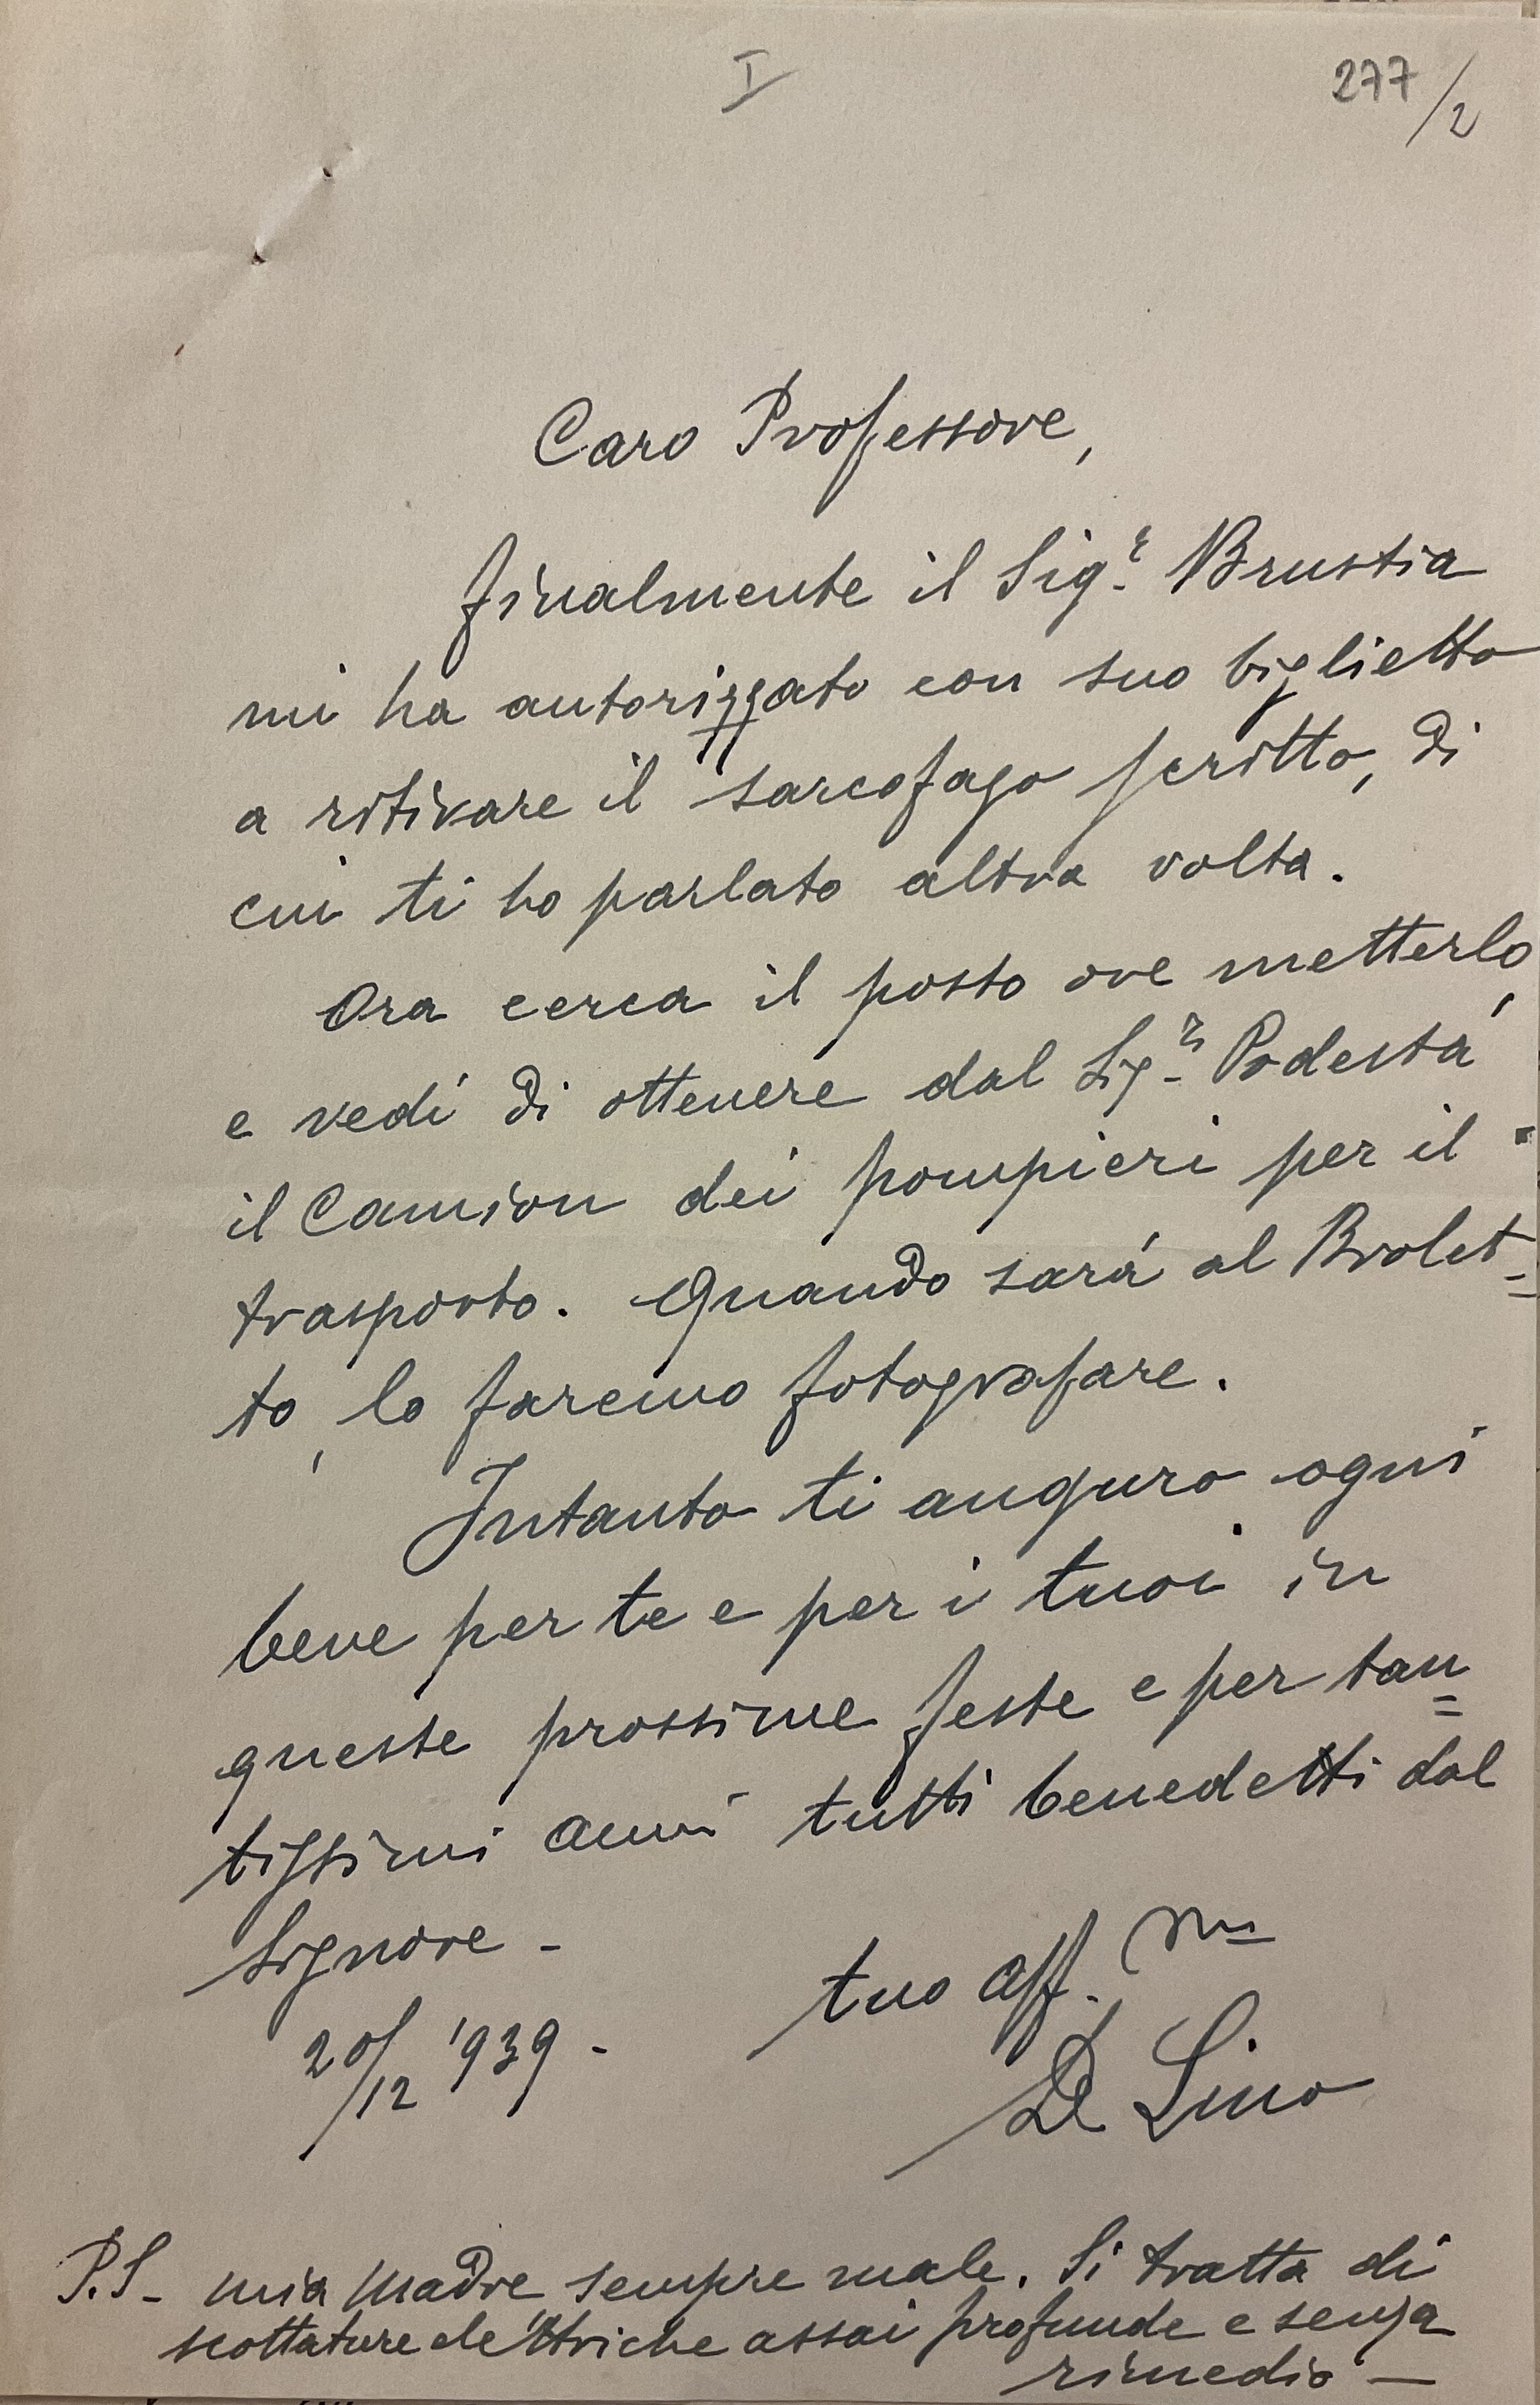 I
277/2
Caro Professore,
finalmente il Sig.r Brustia
mi ha autorizzato con suo biglietto
a ritirare il sarcofago scritto, di
cui ti ho parlato altra volta.
Ora cerca il posto ove metterlo,
e vedi di ottenere dal Sig.r Podestà
il Camion dei pompieri per il
trasporto. Quando sarà al Brolet=
to, lo faremo fotografare.
Intanto ti auguro ogni
bene per te e per i tuoi in
queste prossime feste e per tan=
tissimi anni tutti benedetti dal
Signore -
tuo aff.mo
20/12 '939 -
De Lino
P.S- mia Madre sempre male. Si tratta di
scottature elettriche assai profunde e senza
rimedio —